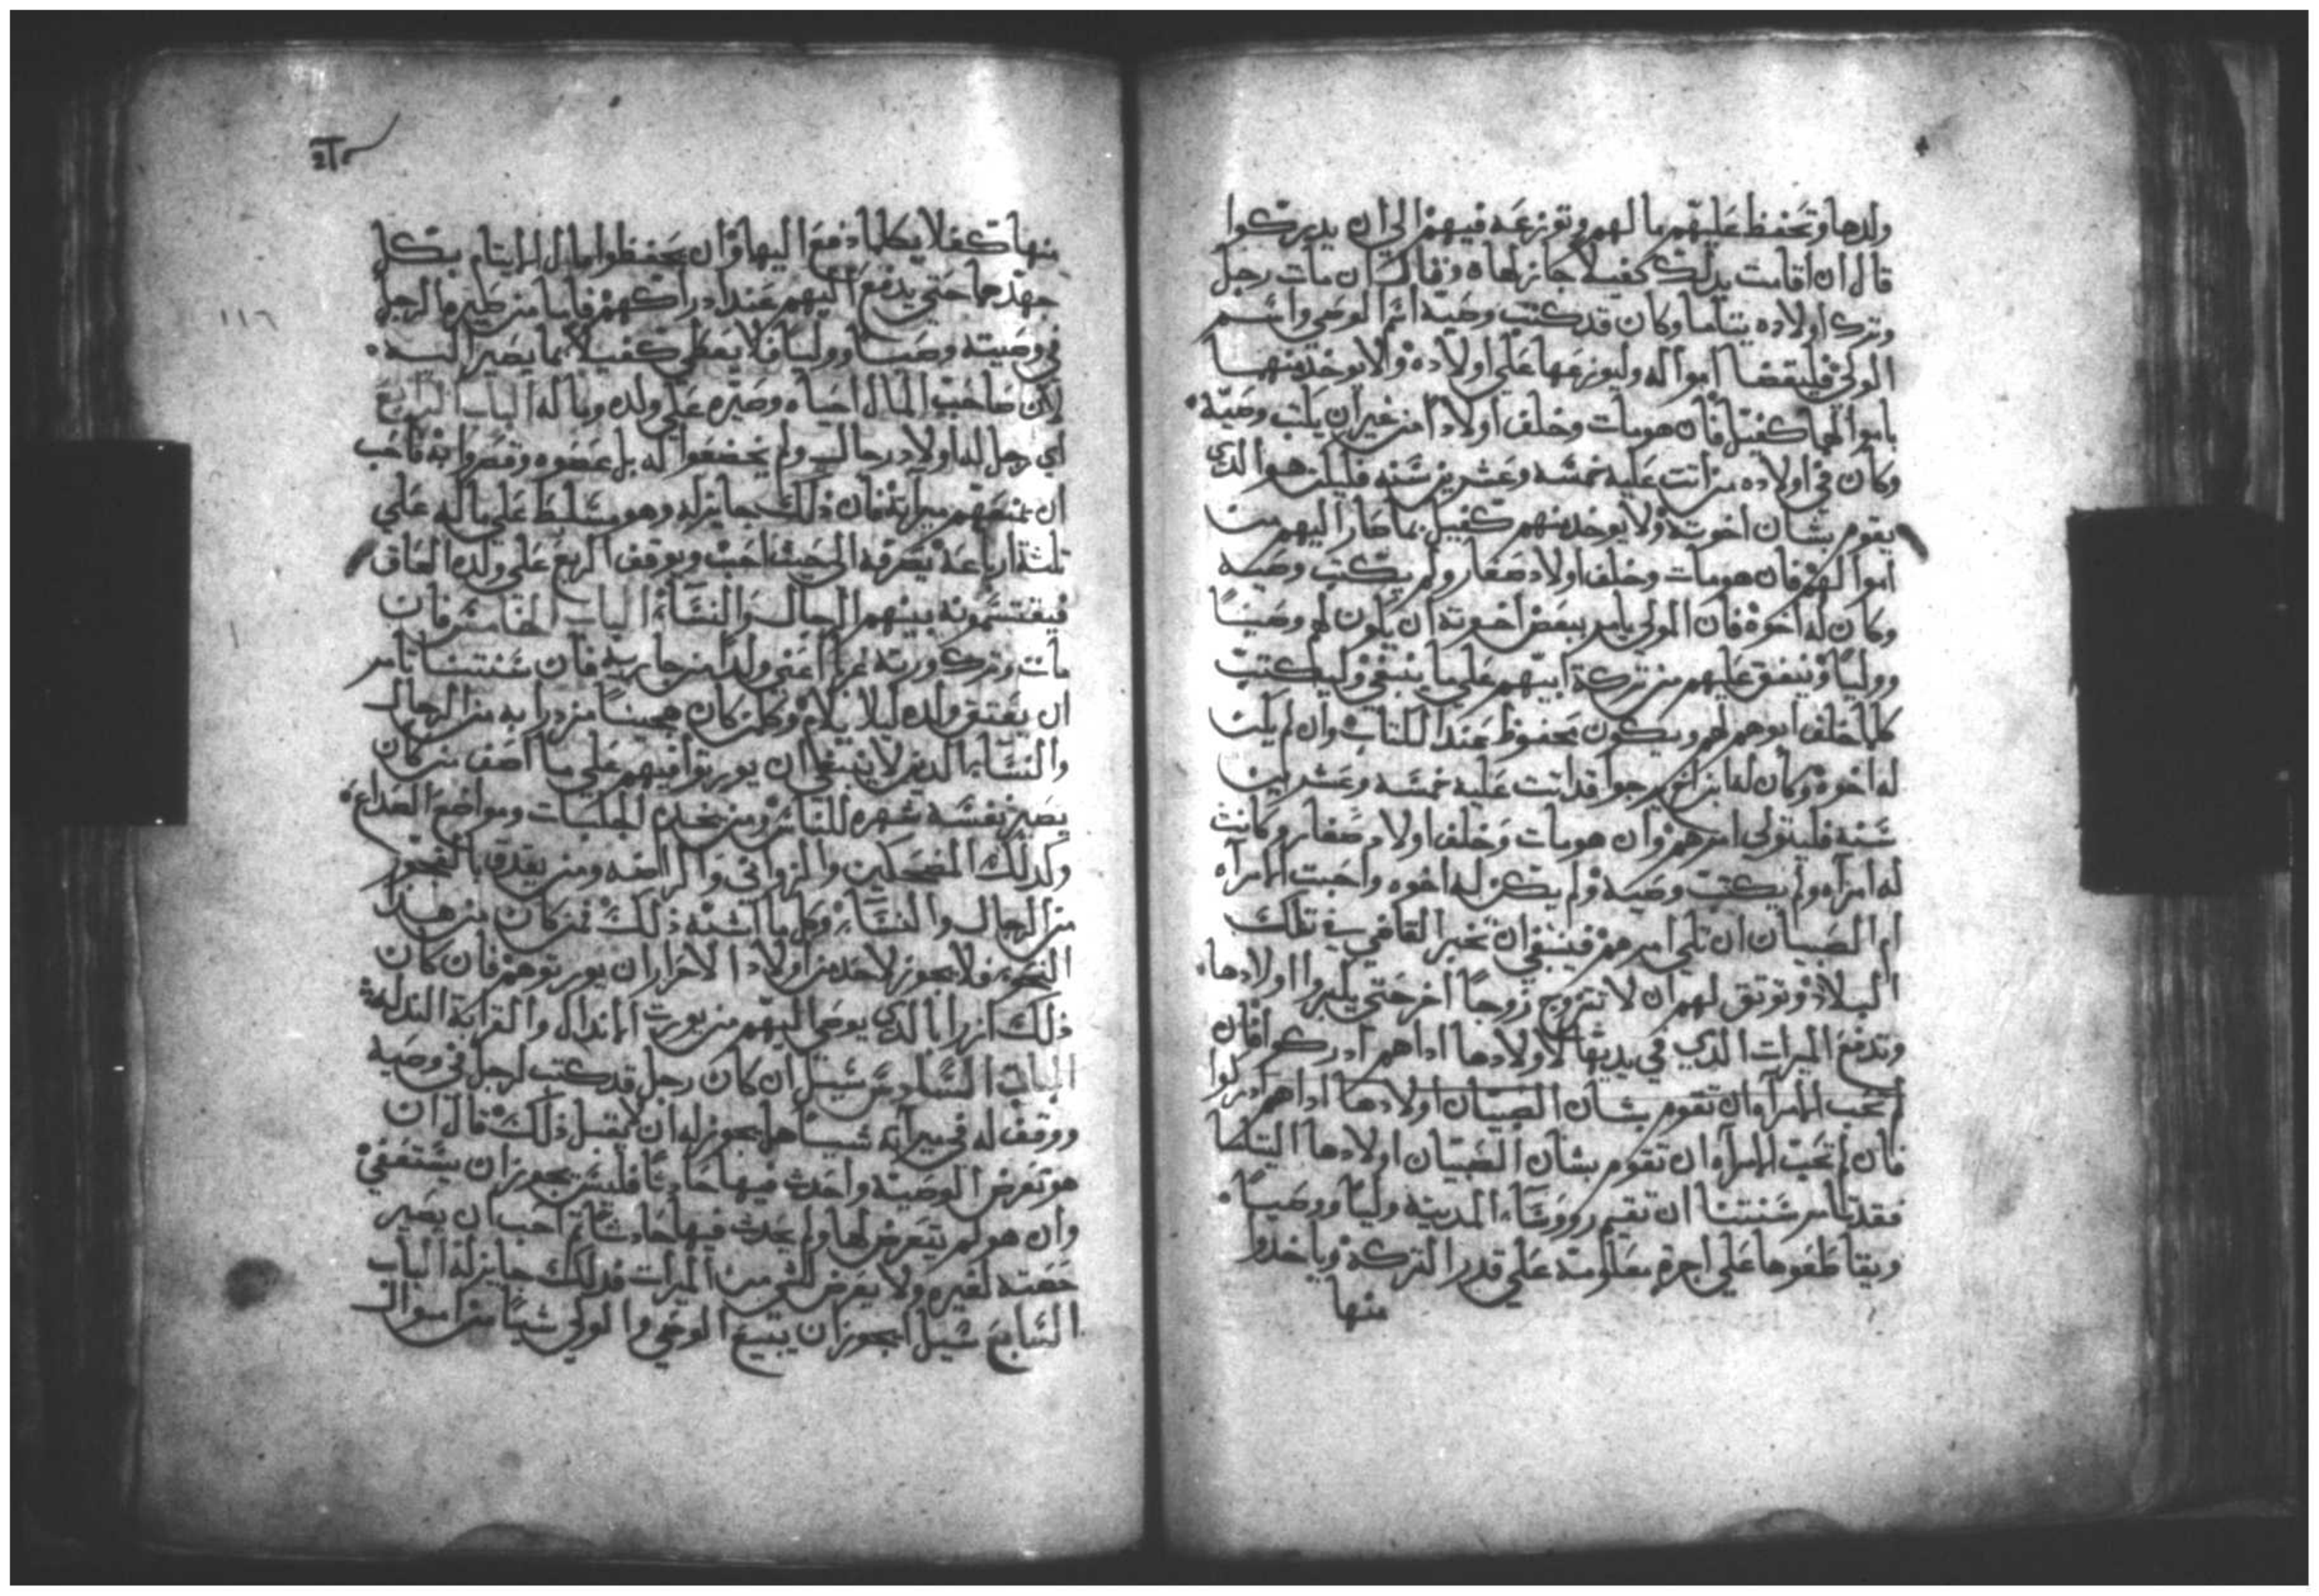 ولدها وتحفظ عليهم مالهم وتوزعه فيهم الي ان يدركوا
قال ان اقامت بذلك كفيلا جاز لها ه وقال ان مات رجل
وترك اولاده يتاما وكان قد كتب وصية اسم الوصي واسم
الولي فليقضا امواله وليوزعها علي اولاده ولا يوخذ منهما
باموالهما كفيل فان هو مات وخلف اولادا من غير ان يكتب وصية
وكان في اولاده من اتت عليه خمسه وعشرين سنه فليكن هو الدي
يقوم بشان اخوته ولا يوخد منهم كفيل بما صار اليهم من
اموالهم فان هو مات وخلف اولاد صغار ولم يكتب وصيه
وكان له اخوه فان الولي يامر ببعض اخوته ان يكون لهم وصيا
ووليا وينفق عليهم من تركة ابيهم علي ما ينبغي وليكتب
كلما خلف ابوهم لهم ويكون محفوظ عند الكتاب وان لم يكن
له اخوه وكان له ابن اخ يرجوا قد اتت عليه خمسه وعشرين
سنه فليتولي امرهم وان هو مات وخلف اولاد صغار وكانت
له امراه ولم يكتب وصيه ولم يكن له اخوه واحبت المراه
ام الصبيان ان تلي امرهم فينبغي ان تخبر القاضي في تلك
البلاد وتوثق لهم ان لا تتزوج زوجا اخر حتي يكبروا اولادها
وتدفع الميرات الدي في يديها لاولادها اداهم ادركوا فان
لم تحب المراه ان تقوم بشان الصبيان اولادها اداهم ادركوا
فان لم تحب المراه ان تقوم بشان الصبيان اولادها اليتاما
فقد تامر سنتنا ان تقيم رووساء المدينه وليا ووصيا
ويقاطعوها علي اجرة معلومة علي قدر التركة وياخدوا
منها
منها كفلا بكلما دفع اليها وان يحفظوا مال الايتام بكل
جهدهما حتي يدفع اليهم عند ادراكهم فاما من صيره الرجل
في وصيته وصيا ووليا فلا يعطي كفيلا بما يصير اليه
لان صاحب المال احباه وصيره علي ولده وماله الباب الرابع
اي رجل له اولاد رجال ولم يخضعوا له بل عصوه وقصروا به فاحب
ان يمنعهم ميراثه فان ذلك جايز له وهو مسلط علي ماله علي
ثلثة ارباعه يصرفه الي حيث احب ويوقف الربع علي ولده العاق
فيقتسمونه بينهم الرجال والنساء الباب الخامس فان
مات وترك ورثة غرا اعني ولدا من جاريه فان سنتنا تامر
ان يعتق ولده ليلا يلام وكلمن كان هجينا مزدرا به من الرجال
والنسا الدين لا ينبغي ان يورثوا فيهم علي ما اصف من كان
يصير نفسه شهره للناس ومن يخدم الجلبات ومواضع الصداع
وكدلك المضحكين والزواني والراقصه ومن يقدف بالفجور
من الرجال والنساء وكل ما اشبه ذلك فمن كان من هذا
النحو فلا يجوز لاحد من اولاد الاحرار ان يورثوهم فان كان
ذلك ازرا بالدي يوصي اليهم من يورث الاندال والقرابة الندلة
الباب السادس سيل ان كان رجل قد كتب لرجل في وصيه
ووقف له في ميراثه شيا هل يجوز له ان لا يقبل ذلك قال ان
هو تعرض الوصية واحدث فيها حادثا فليس يجوز ان يستعفي
وان هو لم يتعرض لها ولم يحدث فيها حادثا ثم احب ان يصير
حصته لغيره ولا يعرض لشي من الميرات فدلك جايز له الباب
السابع سيل ايجوز ان يبيع الوصي والولي شيا من اموال